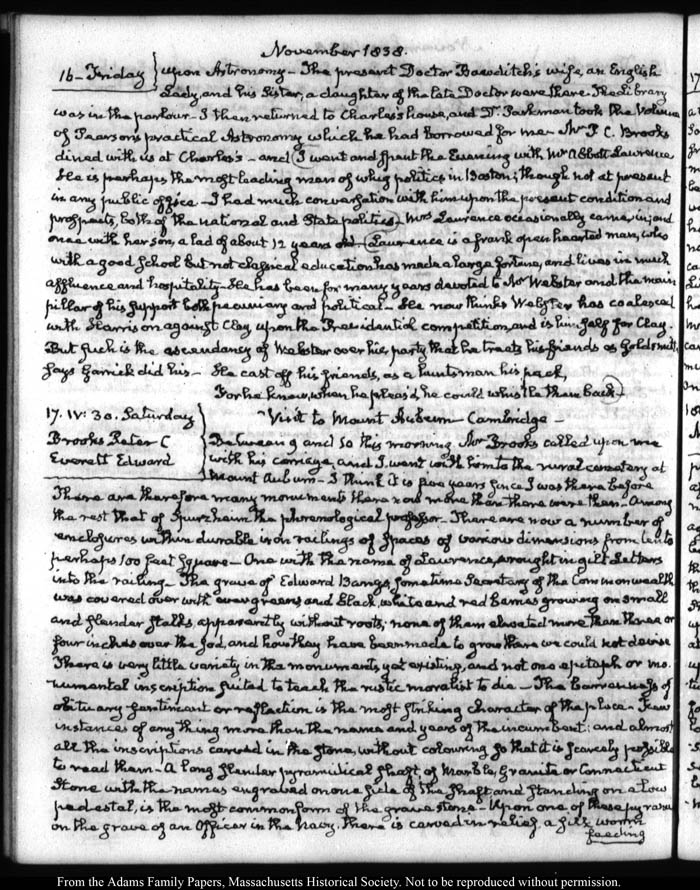 November 1838.
16 - Friday } upon Astronomy - The present Doctor Bowditch's wife, an English
Lady, and his Sister, a daughter of the late Doctor were there. The library
was in the parlour - I then returned to Charles's house, and Dr. Parkman took the Volume
of Pearson's practical Astronomy which he had borrowed for me - Mr P. C. Brooks
dined with us at Charles's - and I went and spent the Evening with Mr Abbott Lawrence
He is perhaps the most leading man of whig politics in Boston; though not at present
in any public office - I had much conversation with him upon the present condition and
prospects, both of the national and State politics. Mrs Lawrence occasionally came in; and
once with her son, a lad of about 12 years old - Lawrence is a frank open hearted man, who
with a good School but not classical education has made a large fortune, and lives in much
affluence and hospitality - He has been for many years devoted to Mr Webster and the main
pillar of his support both pecuniary and political - He now thinks Webster has coalesced
with Harrison against Clay upon the Presidential competition, and is himself for Clay.
But such is the ascendancy of Webster over his party that he treats his friends as Goldsmith
says Garrick did his - He cast off his friends, as a huntsman his pack,
For he knew, when he pleas'd he could whistle them back -
17. IV: 30. Saturday } Visit to Mount Auburn - Cambridge -
Brooks Peter C } Between 9 and 10 this morning, Mr Brooks called upon me
Everett Edward } with his carriage, and I went with him to the rural cemetery at
Mount Auburn - I think it is five years since I was there before
There are therefore many monuments there now more than there were then - Among
the rest that of Spurzheim the phrenological professor - There are now a number of
enclosures within durable iron railings of spaces of various dimensions from ten to
perhaps 100 feet square - One with the name of Lawrence, wrought in gilt Letters
into the railing - The grave of Edward Bangs, sometime Secretary of the Commonwealth
was covered over with evergreens and black, white and red growing on small
and slender stalks, apparently without roots; none of them elevated more than three or
four inches over the sod, and how they have been made to grow there we could not devise
There is very little variety in the monuments yet existing, and not one epitaph or mo-
numental inscription suited to teach the rustic moralist to die - The barrenness of
obituary sentiment or reflection is the most striking character of the place - Few
instances of any thing more than the name and years of the incumbent; and almost
all the inscriptions carved in the stone, without colouring so that it is scarcely possible
to read them - A long slender pyramidical shaft, of Marble, Granite or Connecticut
Stone with the names engraved on one side of the shaft and standing on a low
pedestal, is the most common form of the grave stone - Upon one of these
on the grave of an Officer in the Navy, there is carved in relief, a silk worm
feeding
From the Adams Family Papers, Massachusetts Historical Society. Not to be reproduced without permission.